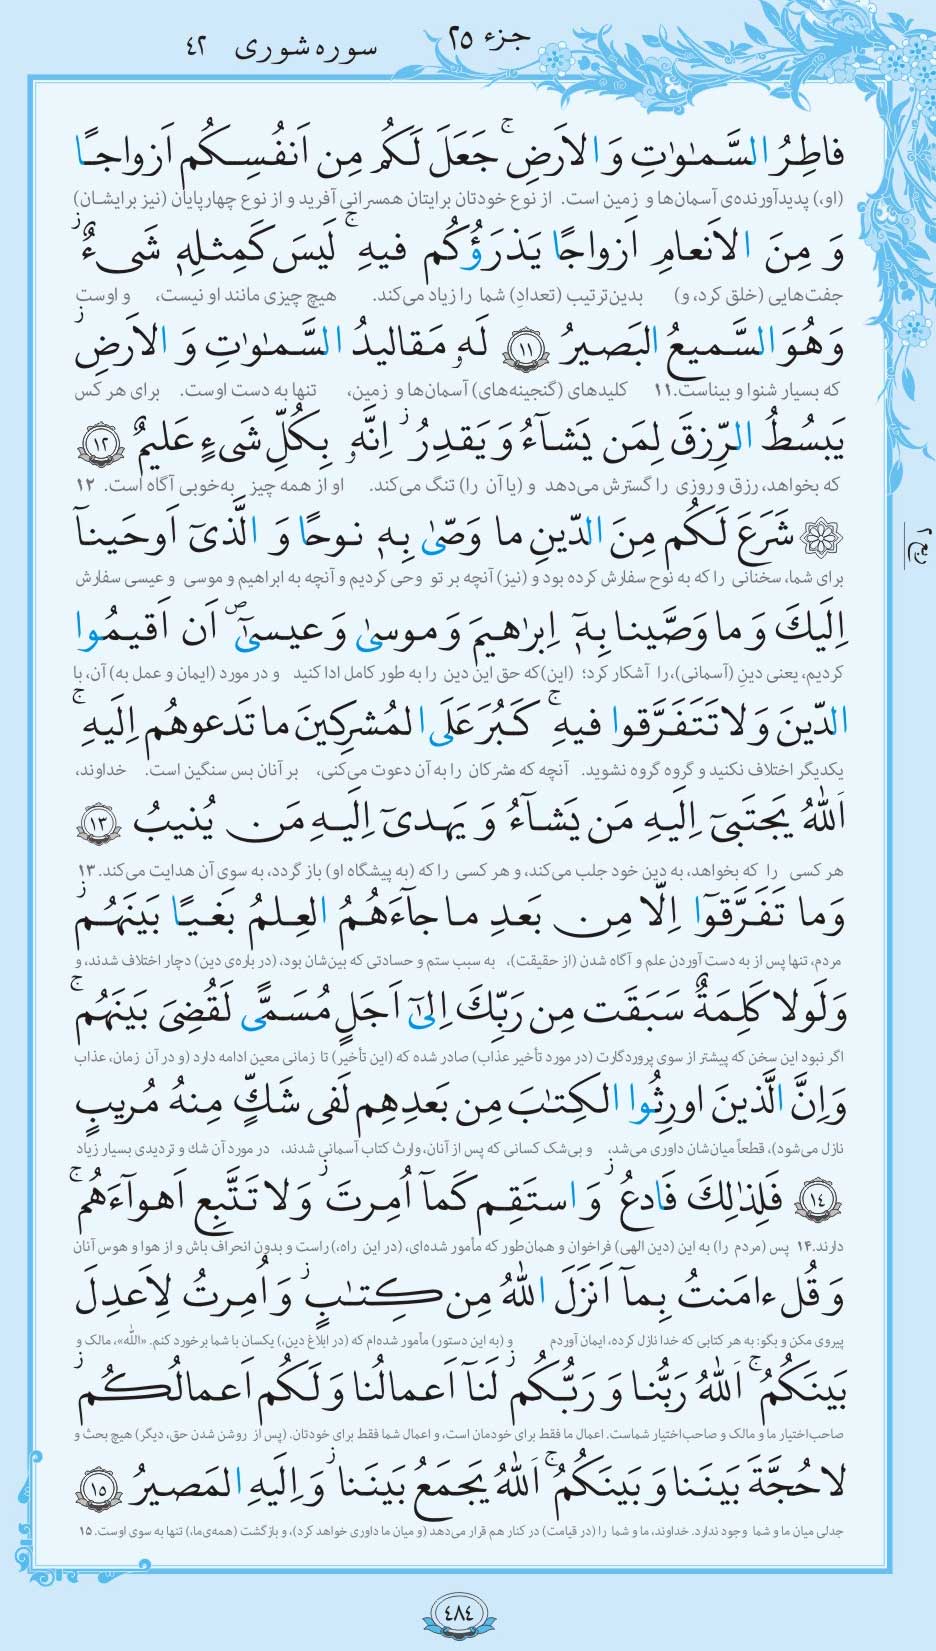 جزء ۲۵
سوره شوری ۴۲
فاطِرُ السَّمٰوٰتِ وَ الاَرضِ ۚ جَعَلَ لَكُم مِن اَنفُسِكُم اَزواجًا
(او،) پدیدآورنده‌ی آسمان‌ها و زمین است. از نوع خودتان برایتان همسرانی آفرید و از نوع چهارپایان (نیز برایشان)
وَ مِنَ الاَنعامِ اَزواجًا يَذرَؤُكُم فيهِ ۚ لَيسَ كَمِثلِهٖ شَیءٌ ۖ
جفت‌هایی (خلق کرد، و) بدین‌ترتیب (تعدادِ) شما را زیاد می‌کند. هیچ چیزی مانند او نیست، و اوست
وَهُوَ السَّميعُ البَصيرُ ﴿۱۱﴾ لَهٗ مَقاليدُ السَّمٰوٰتِ وَ الاَرضِ ۖ
که بسیار شنوا و بیناست.۱۱ کلیدهای (گنجینه‌های) آسمان‌ها و زمین، تنها به دست اوست. برای هر کس
يَبسُطُ الرِّزقَ لِمَن يَشآءُ وَ يَقدِرُ ۚ اِنَّهٗ بِكُلِّ شَیءٍ عَليمٌ ﴿۱۲﴾
که بخواهد، رزق و روزی را گسترش می‌دهد و (یا آن را) تنگ می‌کند. او از همه چیز به‌خوبی آگاه است. ۱۲
۞ شَرَعَ لَكُم مِنَ الدّينِ ما وَصّىٰ بِهٖ نوحًا وَ الَّذیٓ اَوحَينآ
برای شما، سخنانی را که به نوح سفارش کرده بود و (نیز) آنچه بر تو وحی کردیم و آنچه به ابراهیم و موسی و عیسی سفارش
اِلَيكَ وَ ما وَصَّينا بِهٖٓ اِبرٰهيمَ وَ موسىٰ وَ عيسىٰٓ ۖ اَن اَقيمُوا
کردیم، یعنی دینِ (آسمانی)،را آشکار کرد؛ (این)که حق این دین را به طور کامل ادا کنید و در مورد (ایمان و عمل به) آن، با
الدّينَ وَ لا تَتَفَرَّقوا فيهِ ۚ كَبُرَ عَلَى المُشرِكينَ ما تَدعوهُم اِلَيهِ ۚ
یکدیگر اختلاف نکنید و گروه گروه نشوید. آنچه که مشرکان را به آن دعوت می‌کنی، بر آنان بس سنگین است. خداوند،
اَللّٰهُ يَجتَبیٓ اِلَيهِ مَن يَشآءُ وَ يَهدیٓ اِلَيهِ مَن يُنيبُ ﴿۱۳﴾
هر کسی را که بخواهد، به دین خود جلب می‌کند، و هر کسی را که (به پیشگاه او) باز گردد، به سوی آن هدایت می‌کند. ۱۳
وَ ما تَفَرَّقوٓا اِلّا مِن بَعدِ ما جآءَهُمُ العِلمُ بَغيًا بَينَهُم ۚ
مردم، تنها پس از به دست آوردن علم و آگاه شدن (از حقیقت)، به سبب ستم و حسادتی که بین‌شان بود، (در باره‌ی دین) دچار اختلاف شدند، و
وَ لَولا كَلِمَةٌ سَبَقَت مِن رَبِّكَ اِلىٰٓ اَجَلٍ مُسَمًّى لَقُضِیَ بَينَهُم ۚ
اگر نبود این سخن که پیشتر از سوی پروردگارت (در مورد تأخیر عذاب) صادر شده که (این تأخیر) تا زمانی معین ادامه دارد (و در آن زمان، عذاب
وَ اِنَّ الَّذينَ اورِثُوا الكِتٰبَ مِن بَعدِهِم لَفی شَكٍّ مِنهُ مُريبٍ
نازل می‌شود)، قطعاً میان‌شان داوری می‌شد، و بی‌شک کسانی که پس از آنان، وارث کتاب آسمانی شدند، در مورد آن شك و تردیدی بسیار زیاد
﴿۱۴﴾ فَلِذٰلِكَ فَادعُ ۖ وَ استَقِم كَمآ اُمِرتَ ۖ وَ لا تَتَّبِع اَهوآءَهُم ۖ
دارند.۱۴ پس (مردم را) به این (دین الهی) فراخوان و همان‌طور که مأمور شده‌ای، (در این راه،) راست و بدون انحراف باش و از هوا و هوس آنان
وَ قُل ءامَنتُ بِمآ اَنزَلَ اللّٰهُ مِن كِتٰبٍ ۖ وَ اُمِرتُ لِاَعدِلَ
پیروی مکن و بگو: به هر کتابی که خدا نازل کرده، ایمان آوردم و (به این دستور) مأمور شده‌ام که (در ابلاغ دین،) یکسان با شما برخورد کنم. «اللّٰه»، مالک و
بَينَكُمُ ۖ اَللّٰهُ رَبُّنا وَ رَبُّكُم ۖ لَنآ اَعمالُنا وَ لَكُم اَعمالُكُم ۖ
صاحب‌اختیار ما و مالک و صاحب‌اختیار شماست. اعمال ما فقط برای خودمان است، و اعمال شما فقط برای خودتان. (پس از روشن شدن حق، دیگر) هیچ بحث و
لا حُجَّةَ بَينَنا وَ بَينَكُمُ ۖ اَللّٰهُ يَجمَعُ بَينَنا ۖ وَ اِلَيهِ المَصيرُ ﴿۱۵﴾
جدلی میان ما و شما وجود ندارد. خداوند، ما و شما را (در قیامت) در کنار هم قرار می‌دهد (و میان ما داوری خواهد کرد)، و بازگشت (همه‌ی‌ما،) تنها به سوی اوست. ۱۵
۴۸۴